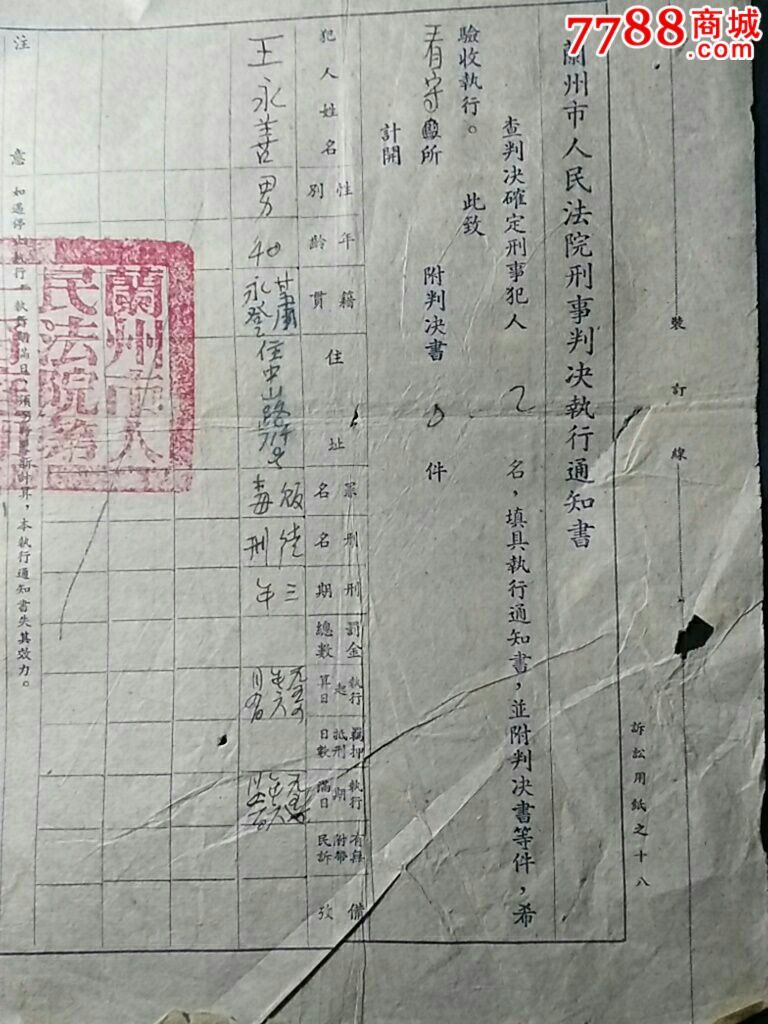 7788商城
.com
裝訂線
訴訟用紙之十八
蘭州市人民法院刑事判决執行通知書
查判决確定刑事犯人 乙 名，填具執行通知書，並附判决書等件，希
驗收執行。 此致
看守所 附判决書 件
計開
犯人姓名
性別
年齡
籍貫
住址
罪名
刑名
刑期
罰金總數
執行起算日
羈押抵刑日數
執行期滿日
有無附帶民訴
備攷
王永善
男
40
甘肅永登
住中山路
販毒
徒刑
三年
蘭州市人
民法院
注意 如遇停止執行，執行期滿日，須另行重新計算，本執行通知書失其效力。